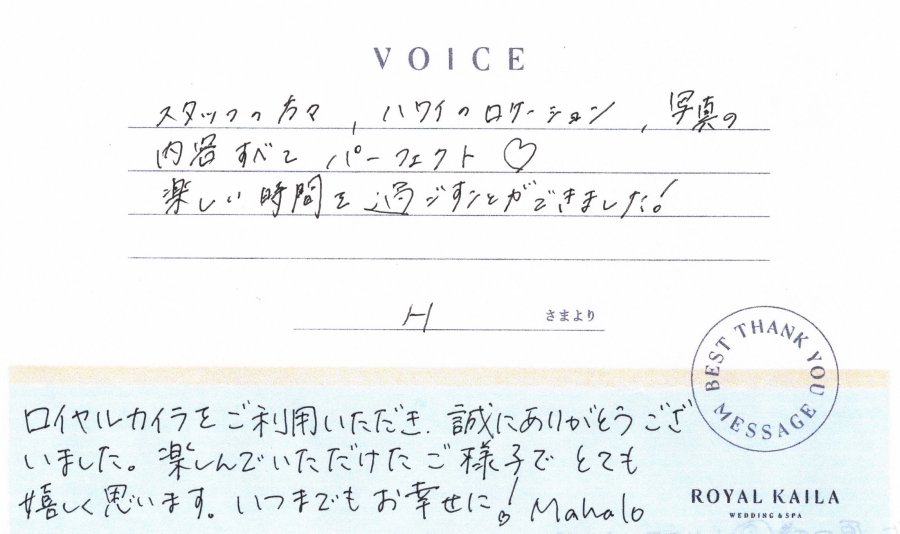 VOICE
スタッフの方々、ハワイのロケーション、写真の
内容すべて パーフェクト♡
楽しい時間を過ごすことができました!
H さまより
BEST THANK YOU MESSAGE
ロイヤルカイラをご利用いただき、誠にありがとうござ
いました。楽しんでいただけたご様子でとても
嬉しく思います。いつまでもお幸せに! Mahalo
ROYAL KAILA
WEDDING & SPA